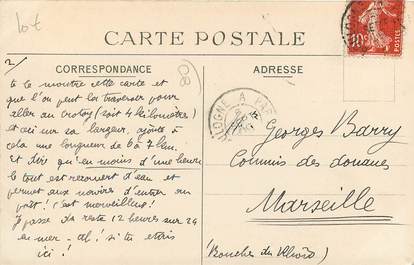 Lot
CARTE POSTALE
CORRESPONDANCE
ADRESSE
10
2/
te le montre cette carte et
que l'on peut les traverser pour
aller au Crotoy (soit 4 kilomètres)
et ceci sur sa largeur, ajoute à
cela une longueur de 6 à 7 km.
Et dire qu'en moins d'une heure
le tout est recouvert d'eau et
permet aux navires d'entrer au
port! c'est merveilleux!
Je passe du reste 12 heures sur 24
en mer - Ah! si tu étais
ici!
80
Georges Barry
Commis des douanes
Marseille
(Bouches du Rhône)